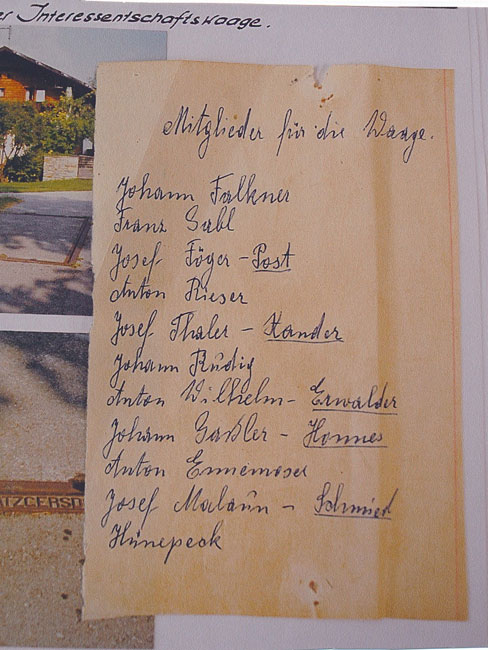 er Interessentschaftswaage.
Mitglieder für die Waage.
Johann Falkner
Franz Gabl
Josef Föger - Post
Anton Rieser
Josef Thaler - Xander
Johann Rüdig
Anton Wilhelm - Erwalder
Johann Gaßler - Honnes
Anton Ennemoser
Josef Malaun - Schmied
Hünepeok
ATZGERSD